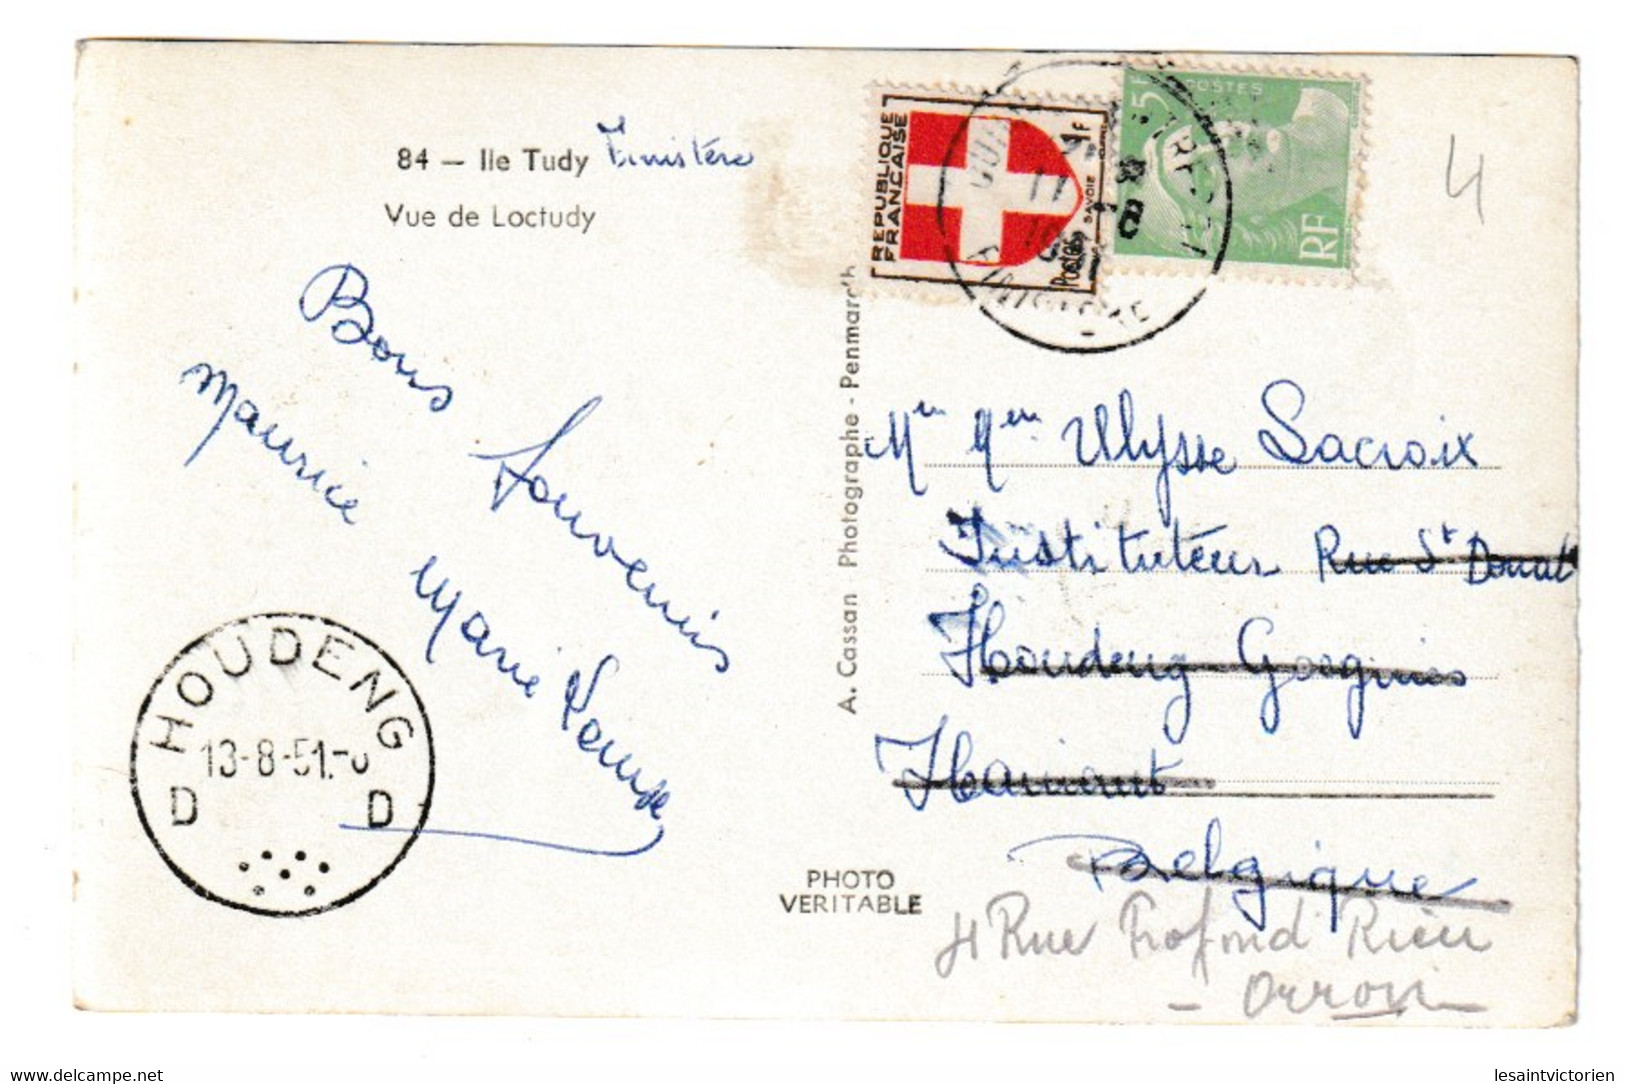 84 — Ile Tudy Finistère
Vue de Loctudy
Bons Souvenirs
Maurice Marie
HOUDENG
13-8-51
D D
PHOTO
VERITABLE
A. Cassan Photographe - Penmarc'h
REPUBLIQUE
FRANCAISE
1F
SAVOIE
Postes
5F
POSTES
RF
17 - 8
FINISTERE
4
Ulysse Lacroix
Instituteur Rue St Donat
Houdeng Goegnies
Hainaut
Belgique
4 Rue Profond Rieu
delcampe.net
lesaintvictorien